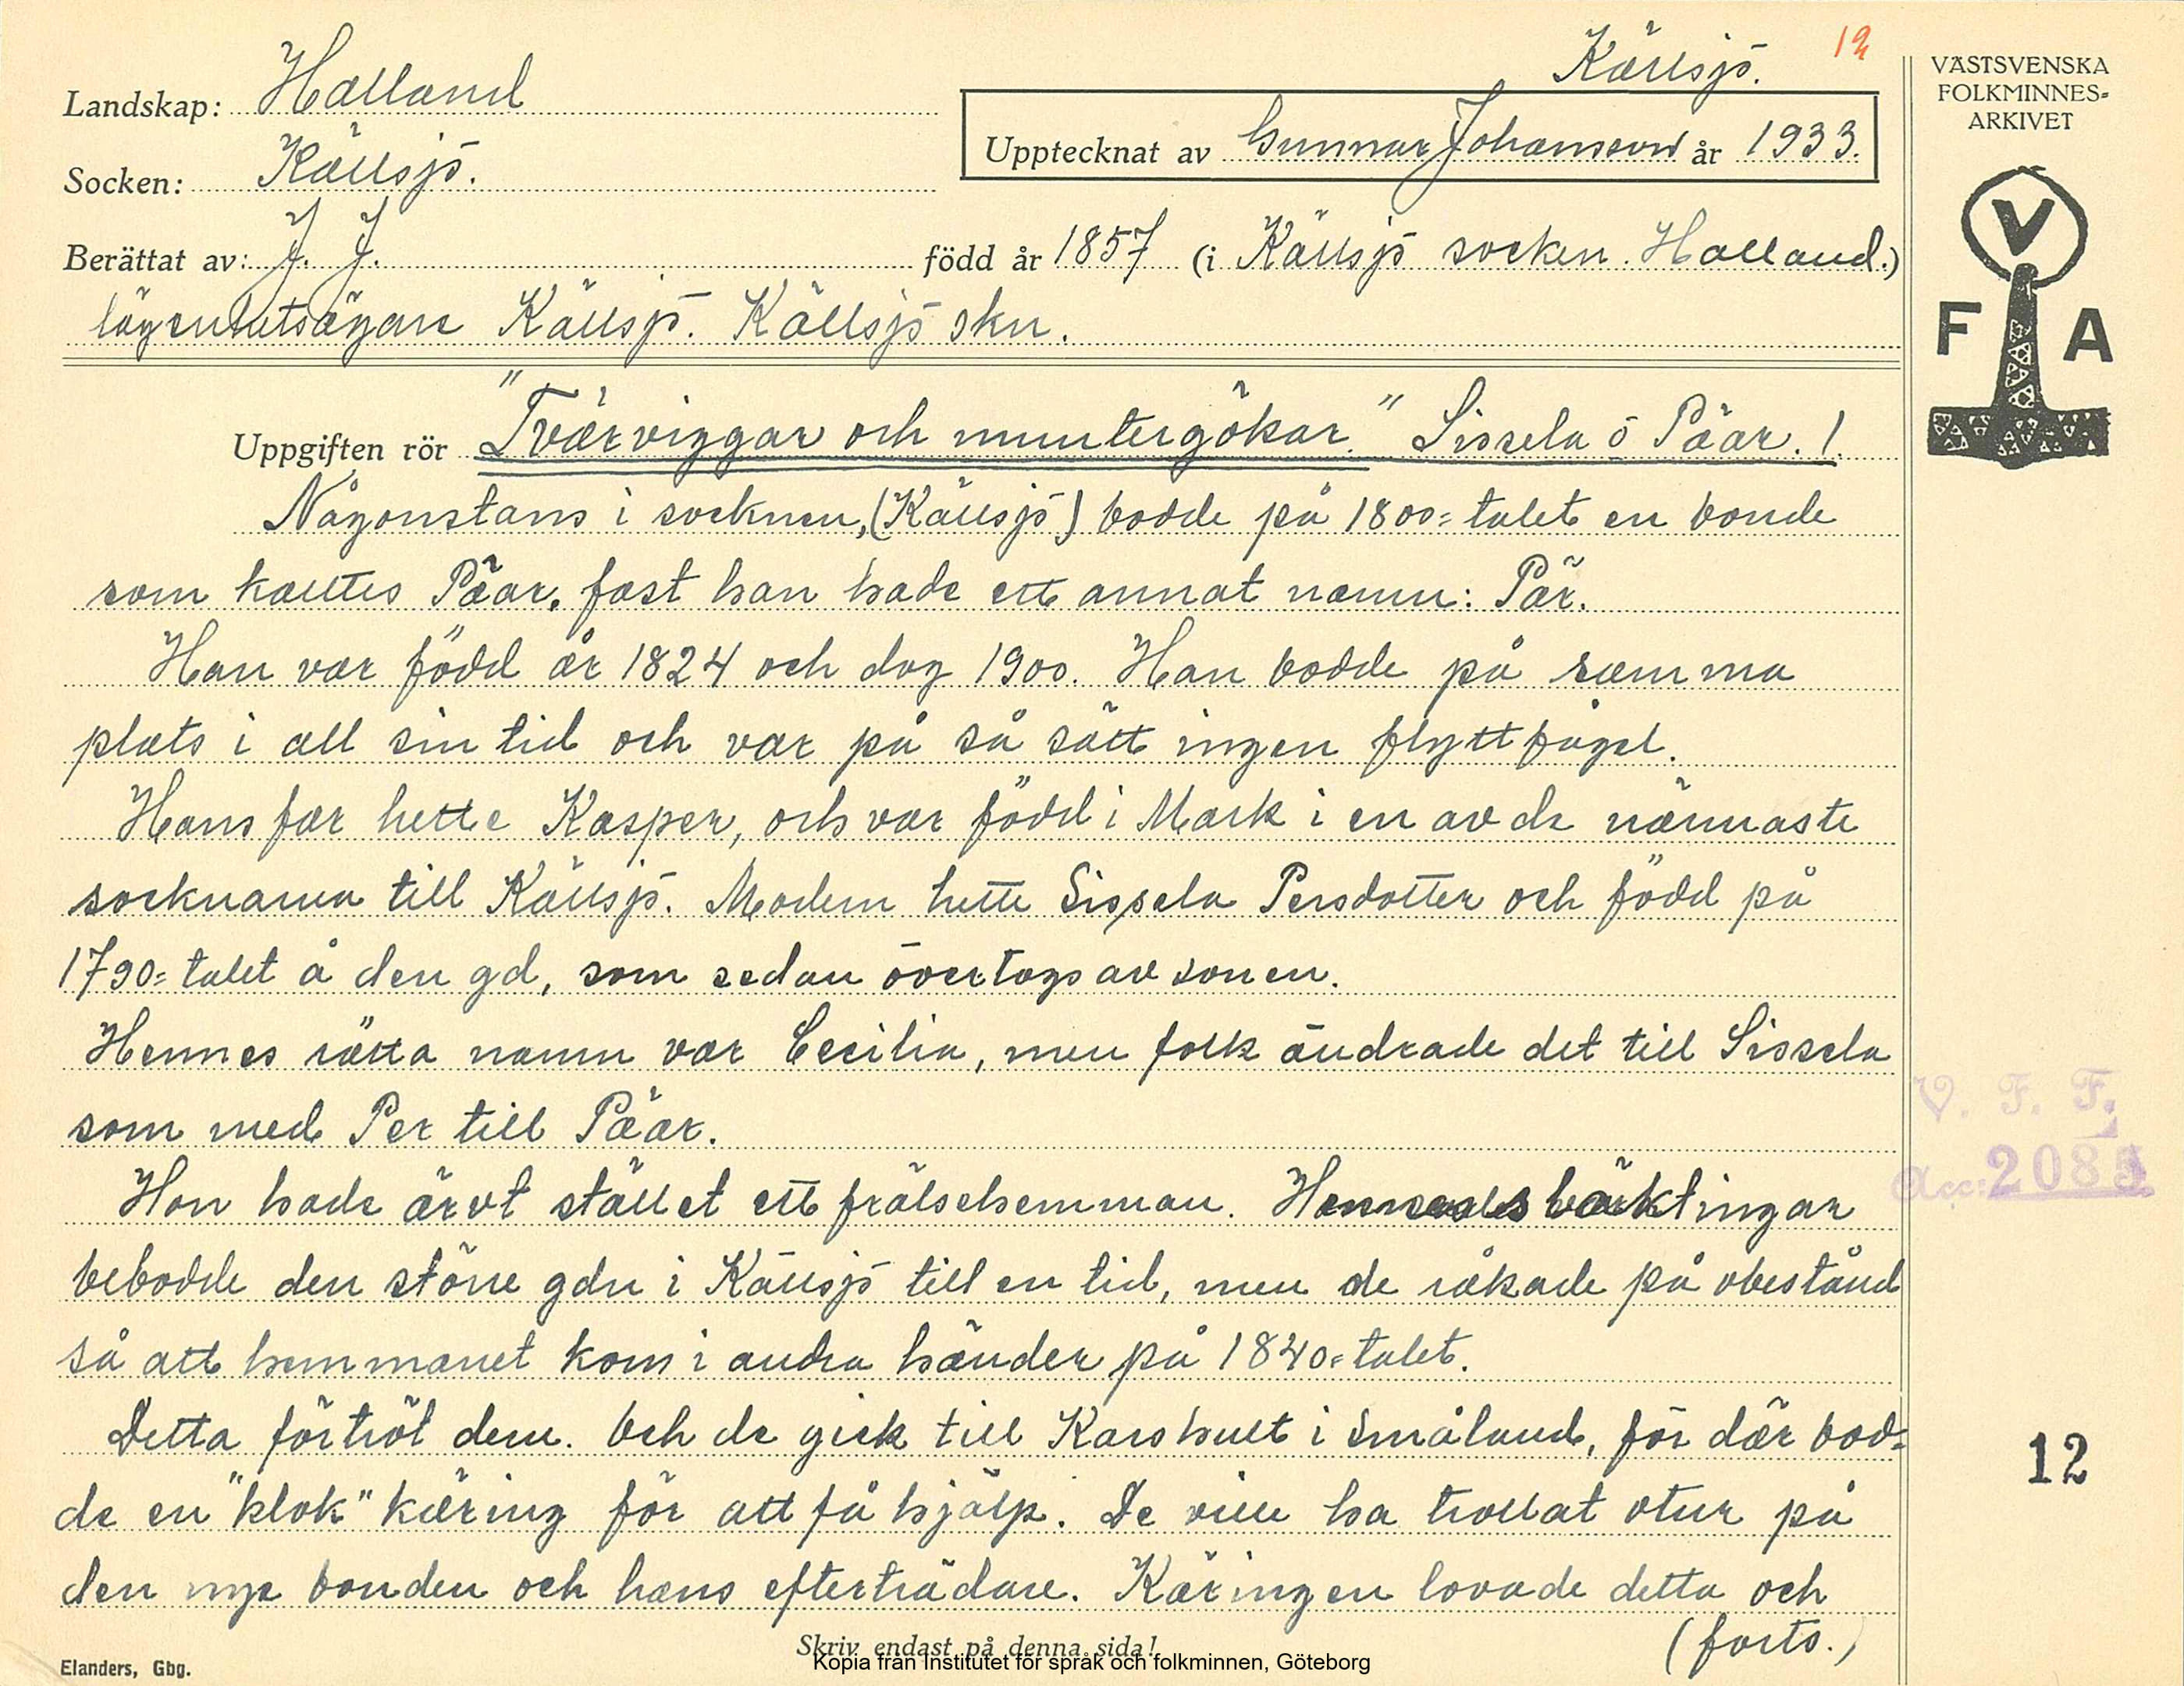 Källsjö. 12
Landskap: Halland
Upptecknat av Gunnar Johansson år 1933.
Socken: Källsjö.
Berättat av: J. J. född år 1857 (i Källsjö socken. Halland.)
lägenhetsägare Källsjö. Källsjö skn.
Uppgiften rör "Tvärviggar och muntergökar." Sissela ö Päar. 1.
Någonstans i socknen, (Källsjö) bodde på 1800=talet en bonde
som kalltes Päar, fast han hade ett annat namn: Pär.
Han var född år 1824 och dog 1900. Han bodde på samma
plats i all sin tid och var på så sätt ingen flyttfågel.
Hans far hette Kasper, och var född i Mark i en av de närmaste
socknarna till Källsjö. Modern hette Sissela Persdotter och född på
1790=talet å den gd, som sedan övertogs av sonen.
Hennes rätta namn var Cecilia, men folk ändrade det till Sissela
som med Per till Päar.
Hon hade ärvt stället ett frälsehemman. Hennes släktingar
bebodde den större gdn i Källsjö till en tid, men de råkade på obestånd
så att hemmanet kom i andra händer på 1840=talet.
Detta förtröt dem. Och de gick till Karshult i Småland, för där bod=
de en "klok" käring för att få hjälp. De ville ha trollat otur på
den nye bonden och hans efterträdare. Käringen lovade detta och
(forts.)
Skriv endast på denna sida!
Elanders, Gbg.
Kopia från Institutet för språk och folkminnen, Göteborg
VÄSTSVENSKA
FOLKMINNES=
ARKIVET
V
F A
V. F. F.
Acc: 2085
12